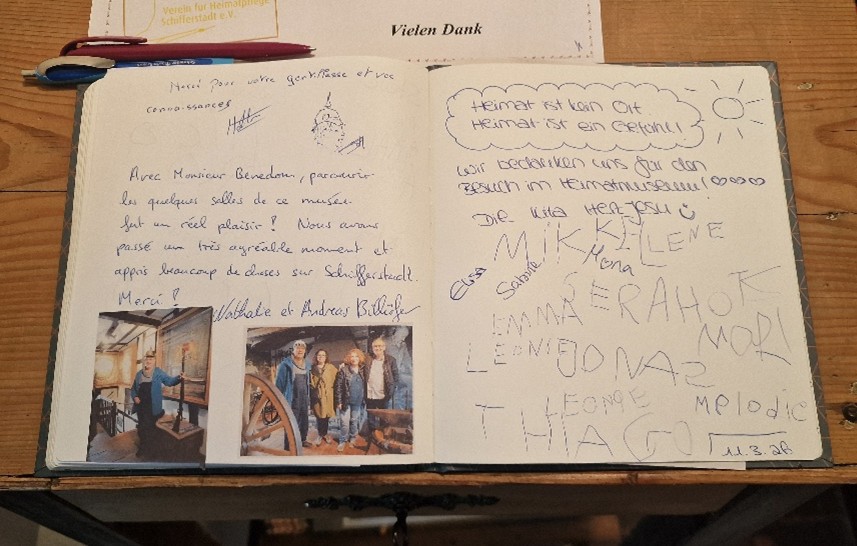 Verein für Heimatpflege
Schifferstadt e.V.
Vielen Dank
Merci pour votre gentillesse et vos
connaissances
Avec Monsieur Benedom, parcourir
les quelques salles de ce musée
fut un réel plaisir ! Nous avons
passé un très agréable moment et
appris beaucoup de choses sur Schifferstadt.
Merci !
Nathalie et Andreas
Heimat ist kein Ort
Heimat ist ein Gefühl!
Wir bedanken uns für den
Besuch im Heimatmuseum! ♡♡♡
Die Kita Herz Jesu
MIKKEL
LENE
Elisa
Sabine
Mona
EMMA
LEONIE
JONAS
MelodiE
THIAGO
11.3.26